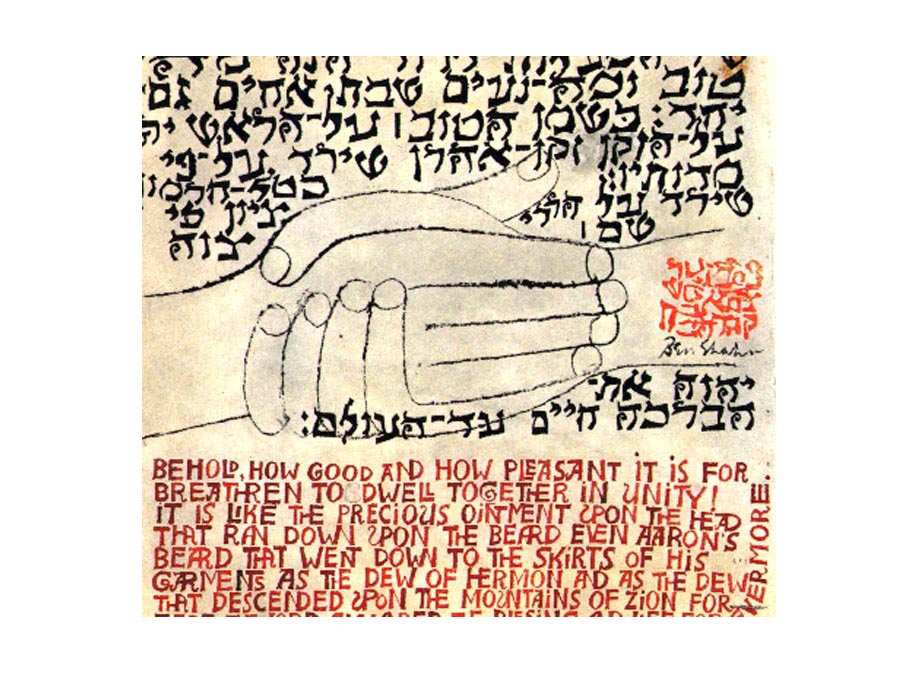 טוב ומה-נעים שבת-אחים גם-
יחד: כשמן הטוב | על-הראש
על-הזקן זקן-אהרן שירד על-פי
מדותיו: כטל-חרמון
שירד על הררי ציון כי
שם | צוה
Ben Shahn
יהוה את-
הברכה חיים עד-העולם:
BEHOLD, HOW GOOD AND HOW PLEASANT IT IS FOR
BREATHREN TO DWELL TOGETHER IN UNITY!
IT IS LIKE THE PRECIOUS OINTMENT UPON THE HEAD
THAT RAN DOWN UPON THE BEARD EVEN AARON'S
BEARD THAT WENT DOWN TO THE SKIRTS OF HIS
GARMENTS AS THE DEW OF HERMON AND AS THE DEW
THAT DESCENDED UPON THE MOUNTAINS OF ZION FOR
EVERMORE.